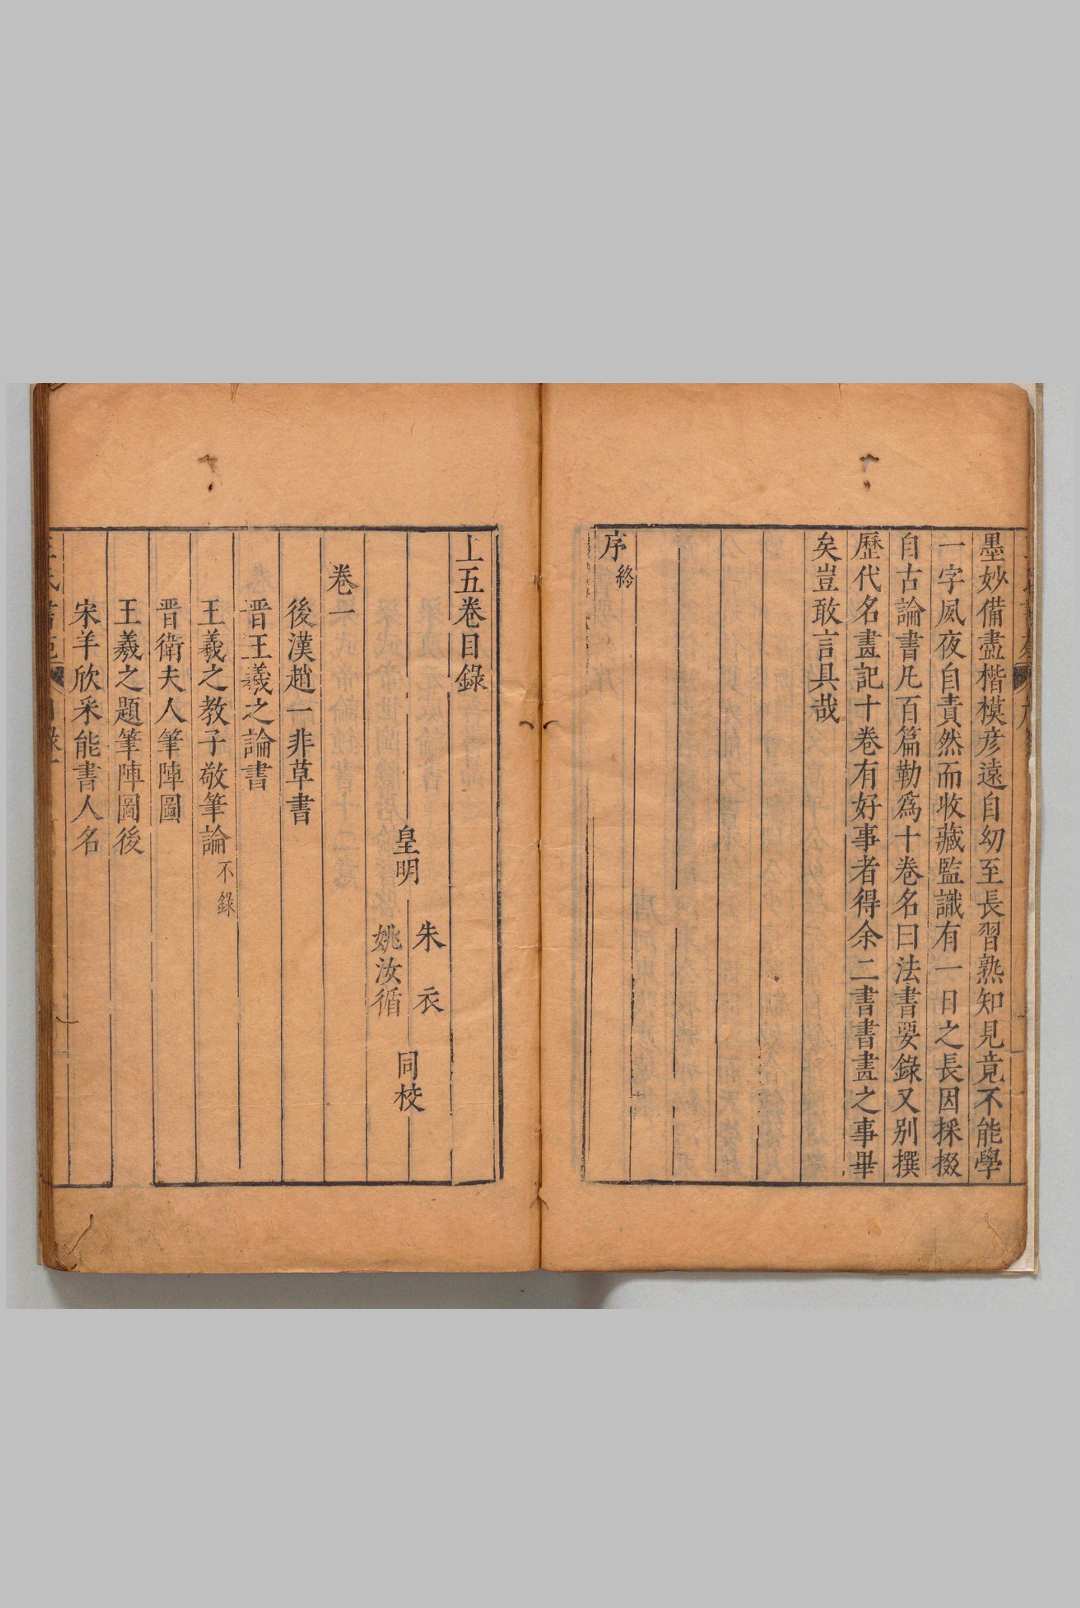 墨妙備盡楷模彦遠自㓜至長習熟知見竟不能學
一字夙夜自責然而收藏監識有一日之長因採掇
自古論書凢百篇勒爲十卷名曰法書要錄又别撰
歷代名畫記十卷有好事者得余二書書畫之事畢
矣豈敢言具哉
序終
上五卷目錄
皇明 朱衣 姚汝循 同校
卷一
後漢趙一非草書
晋王羲之論書
王羲之教子敬筆論不錄
晋衛夫人筆陣圖
王羲之題筆陣圖後
宋羊欣釆能書人名